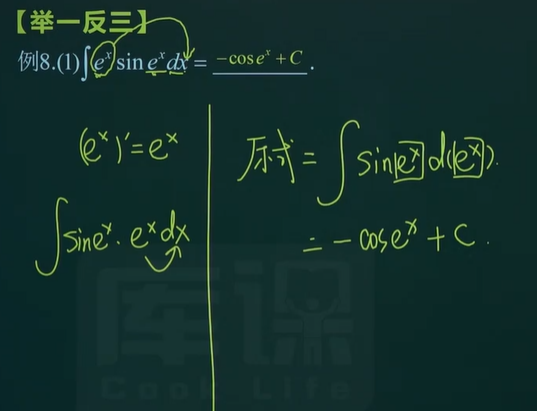 【举一反三】
例8.(1)∫eˣ sin eˣ dx = -cos eˣ + C .
(eˣ)′ = eˣ
∫sin eˣ · eˣ dx
原式 = ∫ sin eˣ d(eˣ).
= - cos eˣ + C .
库课
Cook Life